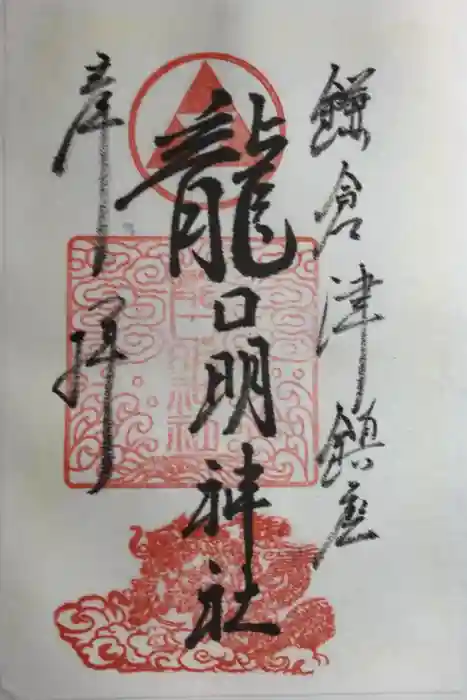 鎌倉津鎮座
龍口明神社
奉拝